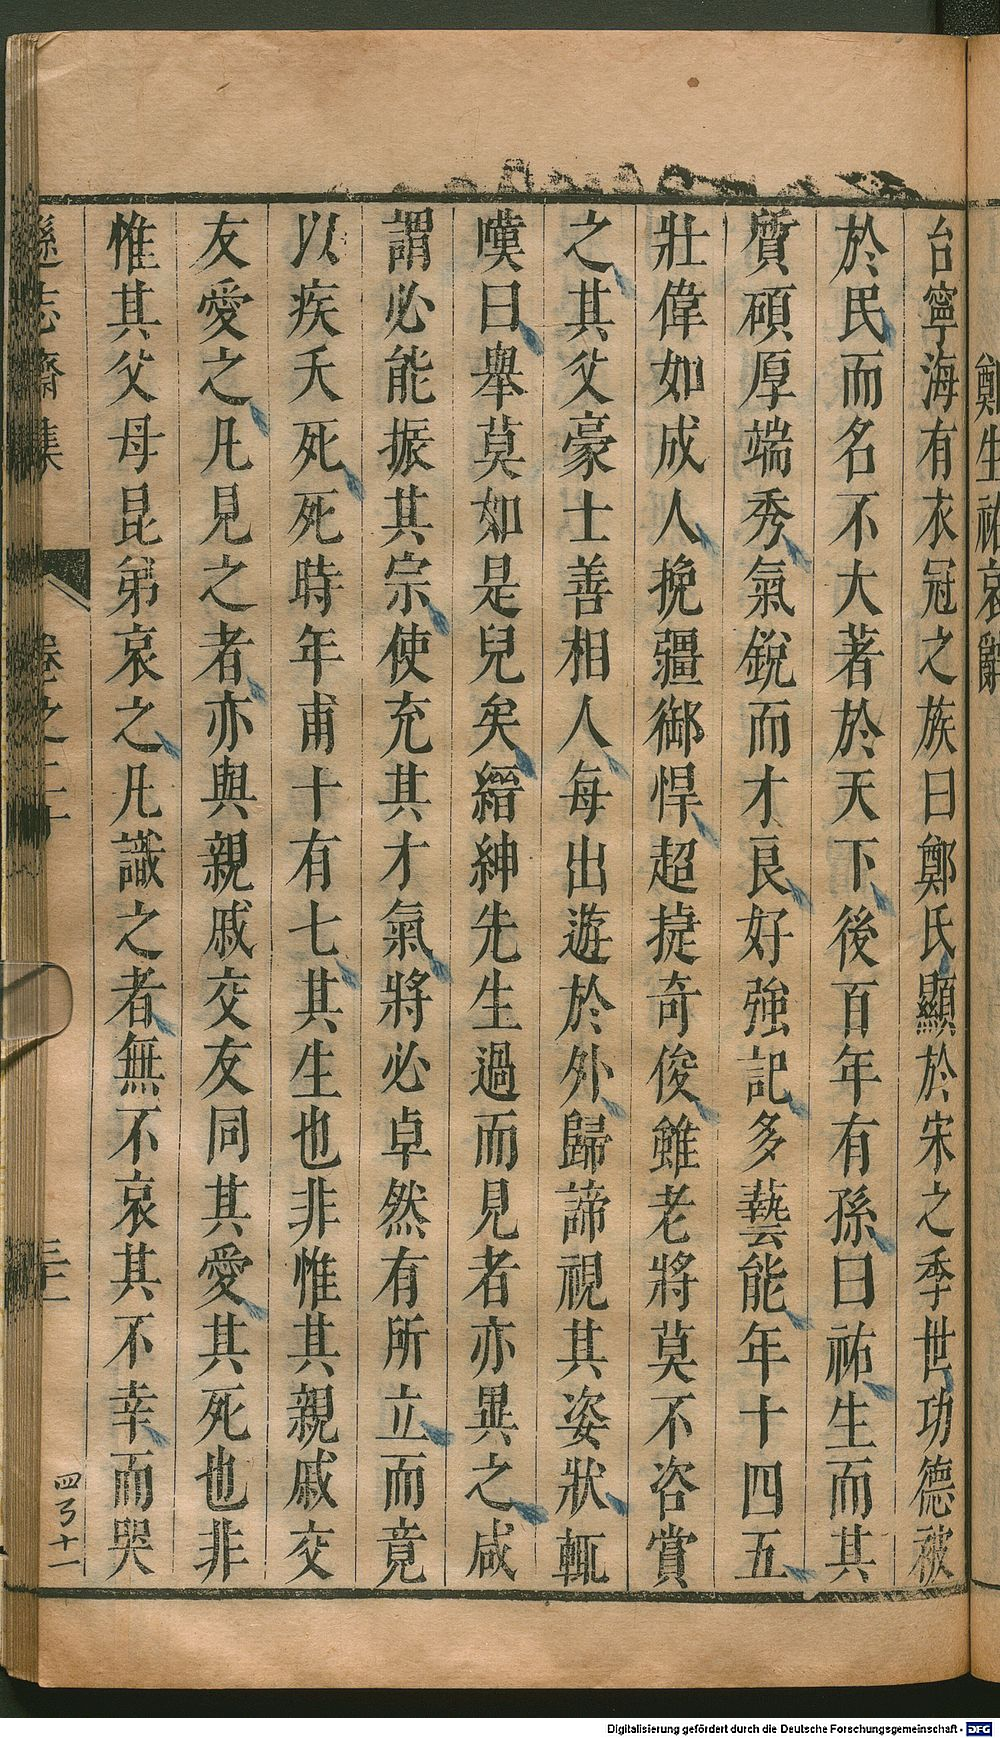 鄭生祐哀辭
台寧海有衣冠之族曰鄭氏顯於宋之季世功德被
於民而名不大著於天下後百年有孫曰祐生而其
質碩厚端秀氣銳而才良好強記多藝能年十四五
壯偉如成人挽彊御悍超㨗奇俊雖老將莫不咨賞
之其父豪士善相人每出遊於外歸諦視其姿狀輒
嘆曰舉莫如是兒矣縉紳先生過而見者亦異之咸
謂必能振其宗使充其才氣將必卓然有所立而竟
以疾夭死死時年甫十有七其生也非惟其親戚交
友愛之凡見之者亦與親戚交友同其愛其死也非
惟其父母昆弟哀之凡識之者無不哀其不幸而哭
遜志齋集
卷之二十
三十一
四弓十一
Digitalisierung gefördert durch die Deutsche Forschungsgemeinschaft - DFG